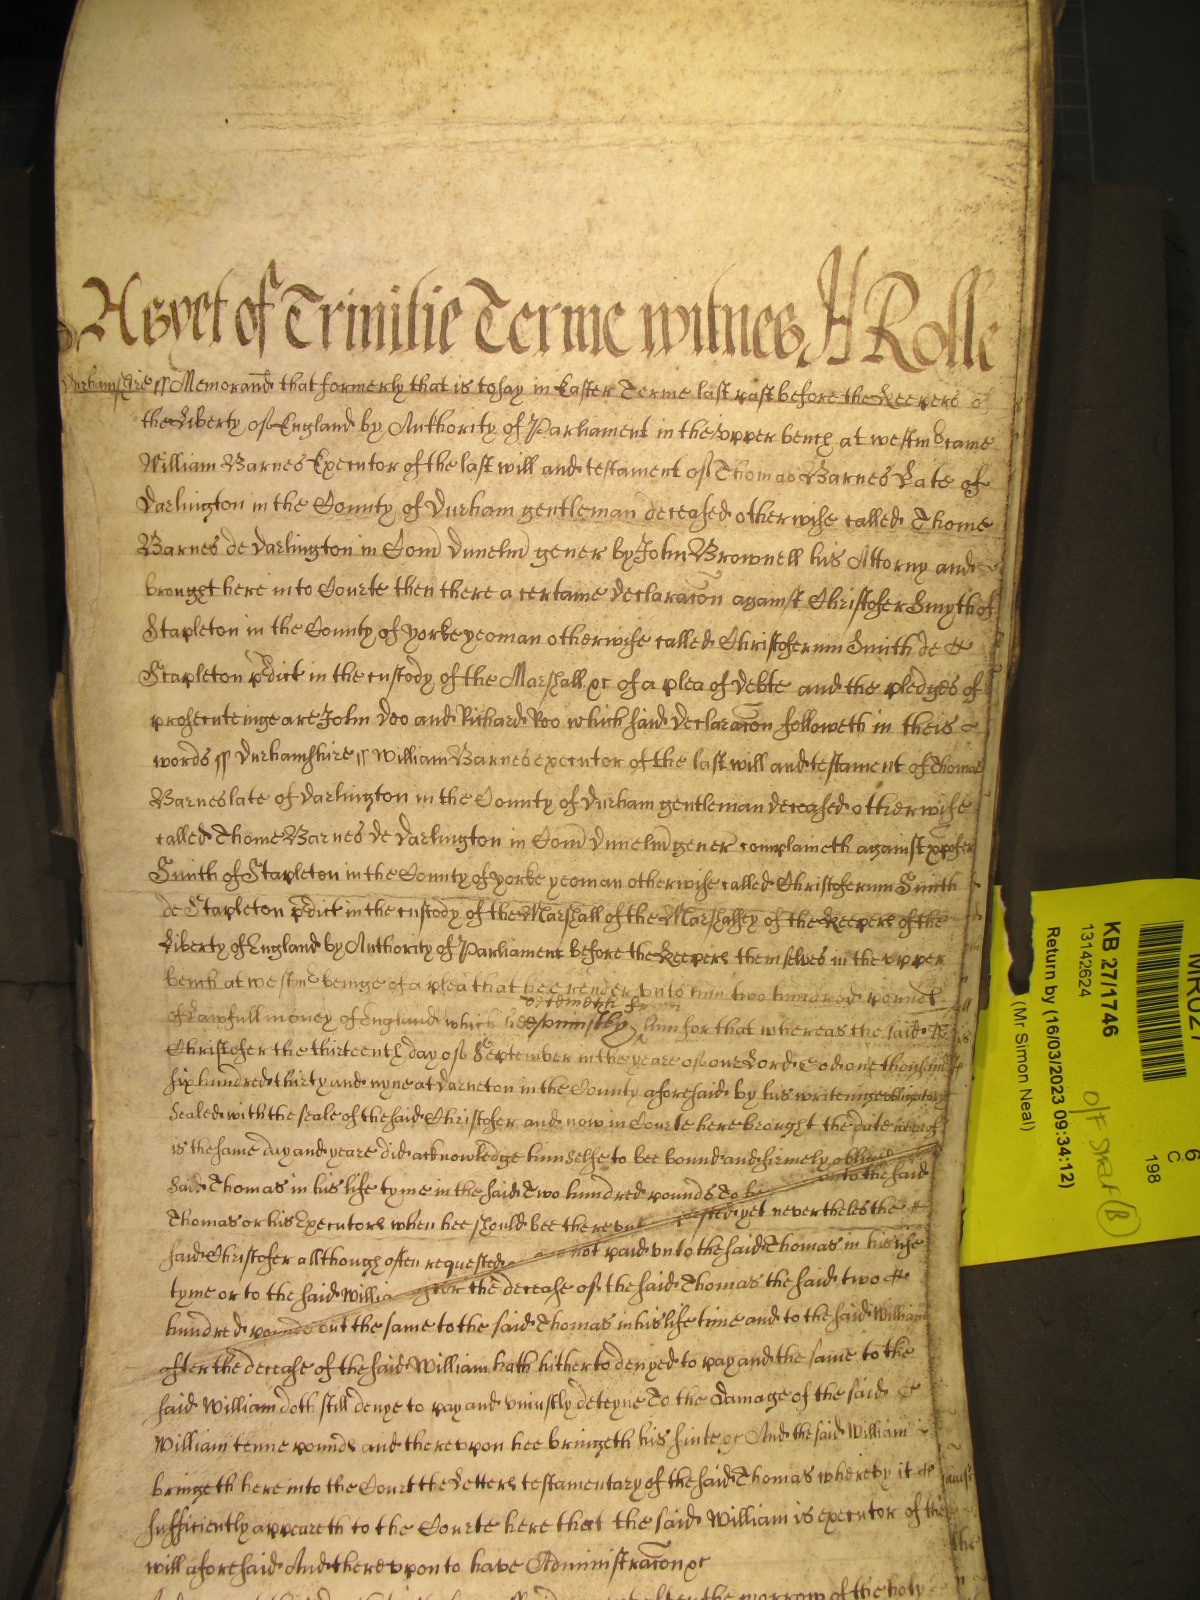 Asyet of Trinitie Terme witnes H Rolle
Durhamshire ss Memorand that formerly that is to say in Easter Terme last past before the Keepers of
the Liberty of England by Authority of Parliament in the upper bench at westm came
William Barnes Executor of the last will and testament of Thomas Barnes Late of
Darlington in the County of Durham gentleman deceased otherwise called Thome
Barnes de Darlington in Com Dunelm gener by John Brownell his Attorny and
brought here into Courte then there a certaine declaracon against Christofer Smyth of
Stapleton in the County of Yorke yeoman otherwise called Christoferum Smith de
Stapleton pdict in the custody of the Marshall &c of a plea of debte and the pledges of
prosecuteinge are John Doo and Richard Roo which said declaracon followeth in theis
words ss Durhamshire ss William Barnes executor of the last will and testament of Thomas
Barnes late of Darlington in the County of Durham gentleman deceased otherwise
called Thome Barnes de Darlington in Com Dunelm gener complaineth against xpofer
Smith of Stapleton in the County of Yorke yeoman otherwise called Christoferum Smith
de Stapleton pdict in the custody of the Marshall of the Marshalsey of the Keepers of the
Liberty of England by Authority of Parliament before the Keepers themselves in the upper
bench at westm beinge of a plea that hee render unto him two hundred pounds
of Lawfull money of England which hee oweth &
uniustly deteineth from him for that whereas the said
Christofer the thirteenth day of September in the yeare of our Lord God one thousand
six hundred thirty and nyne at Darneton in the County aforesaid by his writeinge obligatory
Sealed with the seale of the said Christofer and now in Courte here brought the date whereof
is the same day and yeare did acknowledge himselfe to bee bound and firmely obliged
Said Thomas in his life tyme in the said Two hundred pounds To be to the said
Thomas or his Executors when hee should bee thereunto requested yet nevertheles the
said Christofer allthough often requested not paid unto the said Thomas in his life
tyme or to the said William after the decease of the said Thomas the said two
hundred pounds but the same to the said Thomas in his life time and to the said William
after the decease of the said William hath hitherto denyed to pay and the same to the
said William doth still denye to pay and uniustly deteyne To the Damage of the said
William tenne pounds and thereupon hee bringeth his suite &c And the said William
bringeth here into the Court the Letters testamentary of the said Thomas whereby it
sufficiently appeareth to the Courte here that the said William is executor of the
will aforesaid And thereupon to have Administracon &c
the morrow of the holy
KB 27/1746
13142624
Return by (16/03/2023 09:34:12)
(Mr Simon Neal)
6
C
198